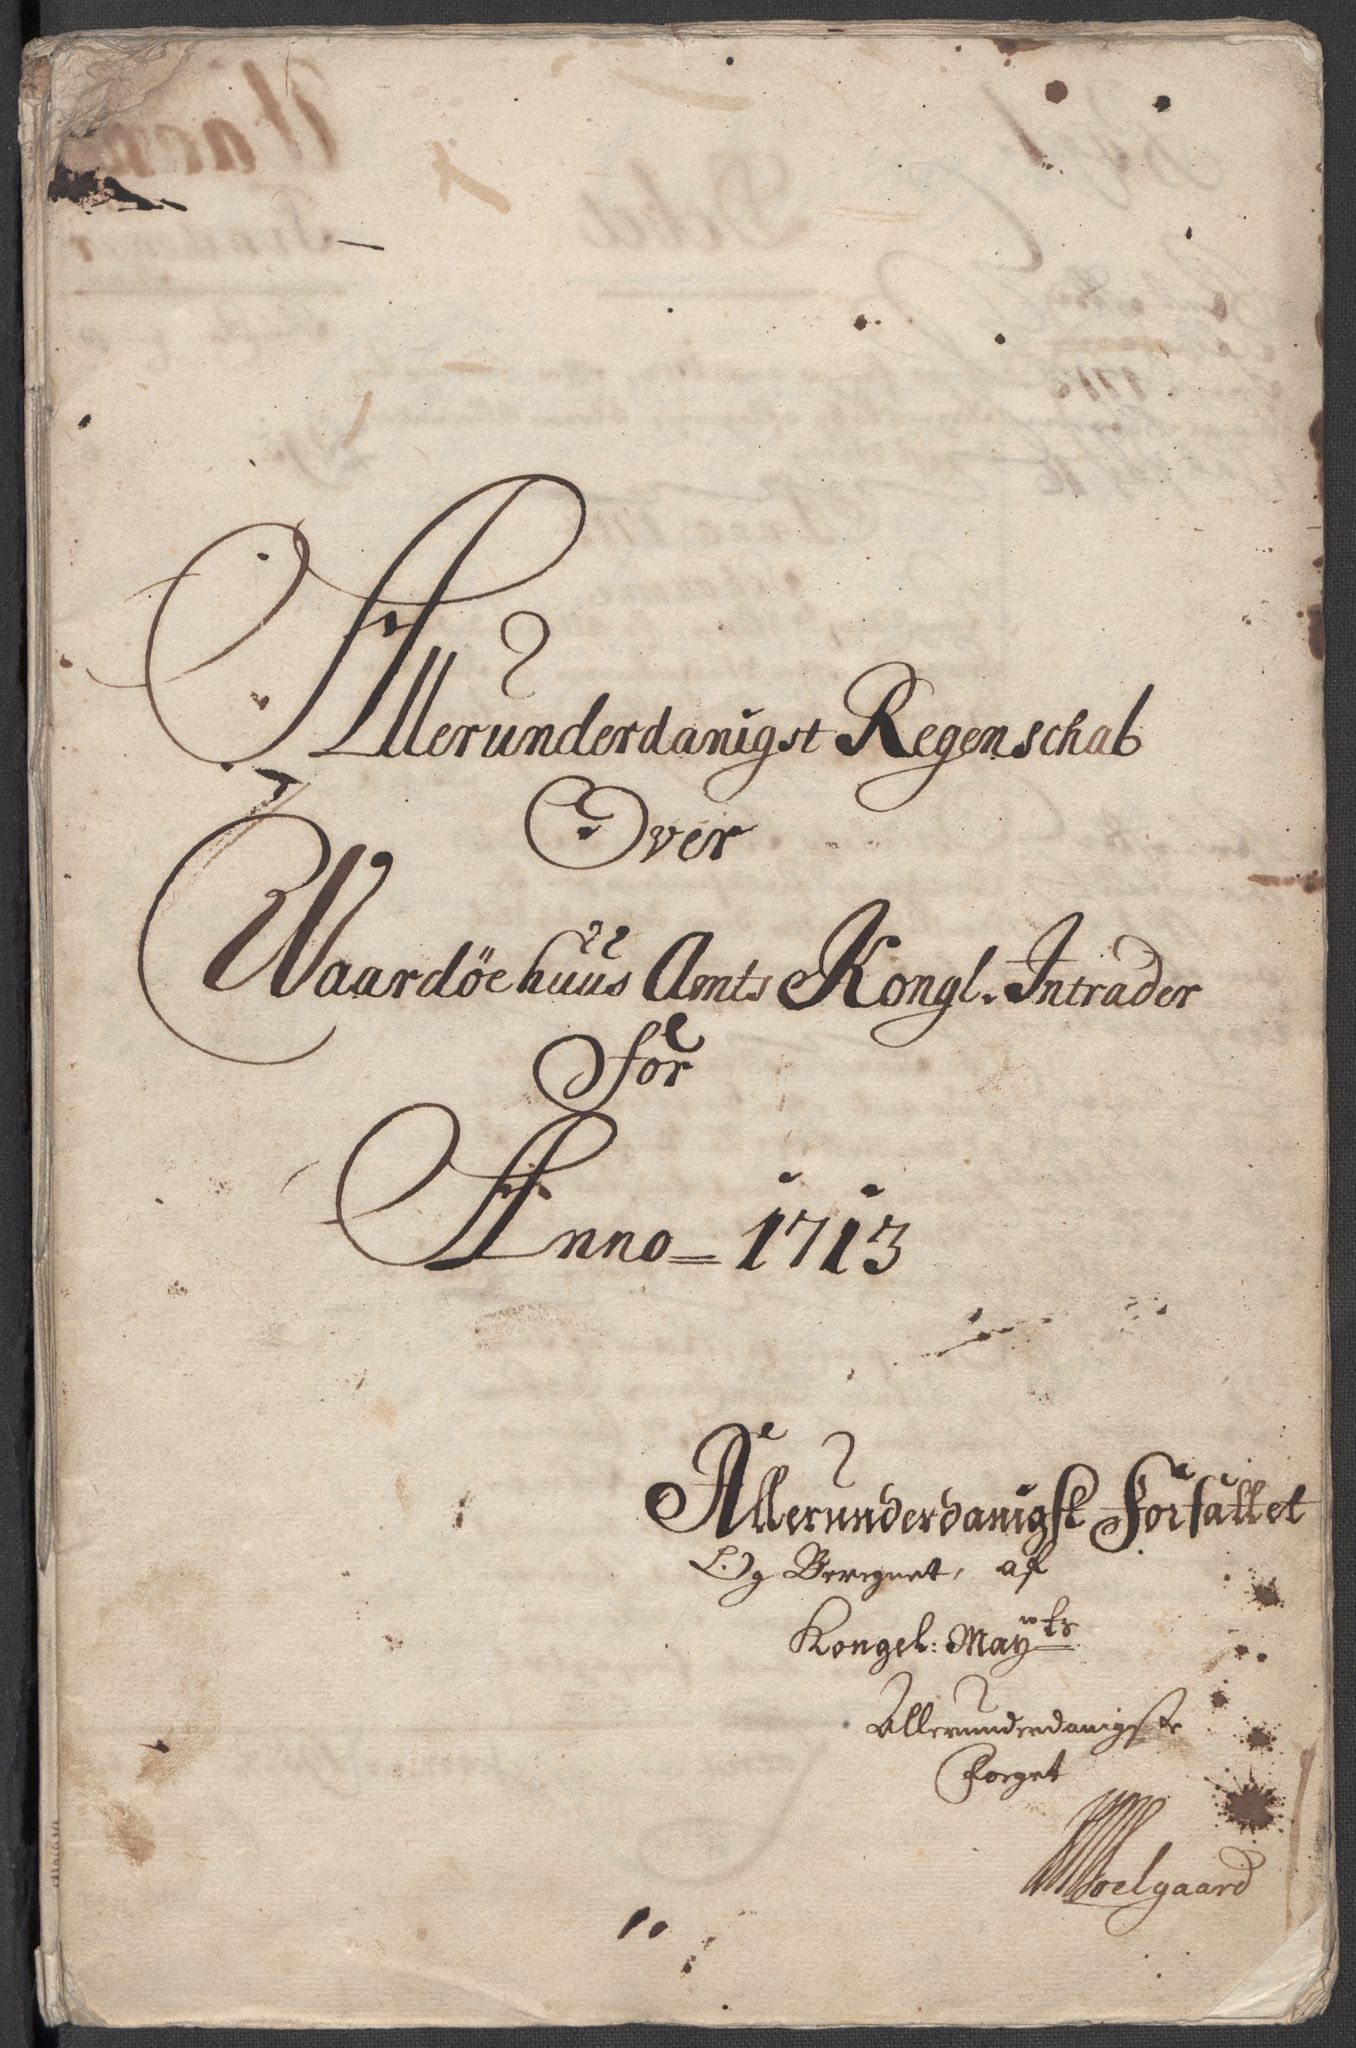 Allerunderdanigst Regenschab
Over
Waardöehuus Amts Kongl. Intrader
for
Anno = 1713
Allerunderdanigst Forfattet
Og Beregnet, af
Kongel: Mayts
Allerunderdanigste
Foeget